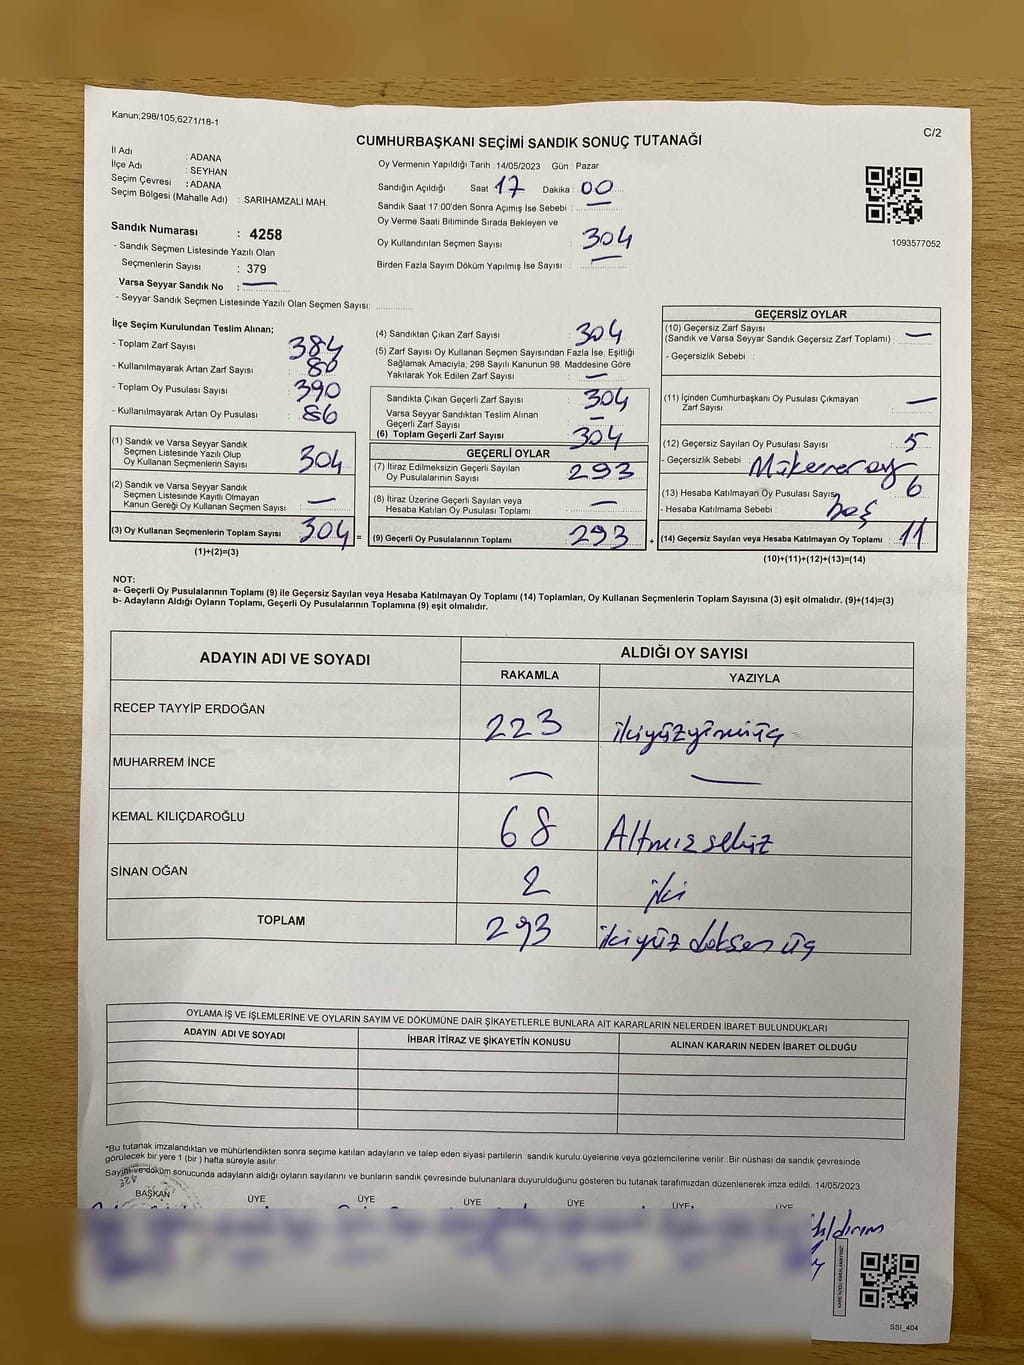 Kanun;298/105;6271/18-1
C/2
CUMHURBAŞKANI SEÇİMİ SANDIK SONUÇ TUTANAĞI
İl Adı : ADANA
İlçe Adı : SEYHAN
Seçim Çevresi : ADANA
Seçim Bölgesi (Mahalle Adı) : SARIHAMZALI MAH.
Oy Vermenin Yapıldığı Tarih : 14/05/2023 Gün : Pazar
Sandığın Açıldığı Saat 17 Dakika : 00
Sandık Saat 17 00'den Sonra Açımış İse Sebebi : —
Oy Verme Saati Bitiminde Sırada Bekleyen ve
Oy Kullandırılan Seçmen Sayısı : 304
Birden Fazla Sayım Döküm Yapılmış İse Sayısı : —
1093577052
Sandık Numarası : 4258
- Sandık Seçmen Listesinde Yazılı Olan
Seçmenlerin Sayısı : 379
Varsa Seyyar Sandık No : —
- Seyyar Sandık Seçmen Listesinde Yazılı Olan Seçmen Sayısı:
İlçe Seçim Kurulundan Teslim Alınan;
- Toplam Zarf Sayısı : 384
- Kullanılmayarak Artan Zarf Sayısı : 80
- Toplam Oy Pusulası Sayısı : 390
- Kullanılmayarak Artan Oy Pusulası : 86
(1) Sandık ve Varsa Seyyar Sandık
Seçmen Listesinde Yazılı Olup
Oy Kullanan Seçmenlerin Sayısı : 304
(2) Sandık ve Varsa Seyyar Sandık
Seçmen Listesinde Kayıtlı Olmayan
Kanun Gereği Oy Kullanan Seçmen Sayısı : —
(3) Oy Kullanan Seçmenlerin Toplam Sayısı : 304 =
(1)+(2)=(3)
(4) Sandıktan Çıkan Zarf Sayısı : 304
(5) Zarf Sayısı Oy Kullanan Seçmen Sayısından Fazla İse, Eşitliği
Sağlamak Amacıyla, 298 Sayılı Kanunun 98. Maddesine Göre
Yakılarak Yok Edilen Zarf Sayısı : —
Sandıkta Çıkan Geçerli Zarf Sayısı : 304
Varsa Seyyar Sandıktan Teslim Alınan
Geçerli Zarf Sayısı : —
(6) Toplam Geçerli Zarf Sayısı : 304
GEÇERLİ OYLAR
(7) İtiraz Edilmeksizin Geçerli Sayılan
Oy Pusulalarının Sayısı : 293
(8) İtiraz Üzerine Geçerli Sayılan veya
Hesaba Katılan Oy Pusulası Toplamı : —
(9) Geçerli Oy Pusulalarının Toplamı : 293 +
GEÇERSİZ OYLAR
(10) Geçersiz Zarf Sayısı
(Sandık ve Varsa Seyyar Sandık Geçersiz Zarf Toplamı) : —
- Geçersizlik Sebebi :
(11) İçinden Cumhurbaşkanı Oy Pusulası Çıkmayan
Zarf Sayısı : —
(12) Geçersiz Sayılan Oy Pusulası Sayısı : 5
- Geçersizlik Sebebi : Mükerrer oy
(13) Hesaba Katılmayan Oy Pusulası Sayısı : 6
- Hesaba Katılmama Sebebi : boş
(14) Geçersiz Sayılan veya Hesaba Katılmayan Oy Toplamı : 11
(10)+(11)+(12)+(13)=(14)
NOT:
a- Geçerli Oy Pusulalarının Toplamı (9) ile Geçersiz Sayılan veya Hesaba Katılmayan Oy Toplamı (14) Toplamları, Oy Kullanan Seçmenlerin Toplam Sayısına (3) eşit olmalıdır. (9)+(14)=(3)
b- Adayların Aldığı Oyların Toplamı, Geçerli Oy Pusulalarının Toplamına (9) eşit olmalıdır.
ADAYIN ADI VE SOYADI
ALDIĞI OY SAYISI
RAKAMLA YAZIYLA
RECEP TAYYİP ERDOĞAN 223 ikiyüzyirmiüç
MUHARREM İNCE — —
KEMAL KILIÇDAROĞLU 68 Altmışsekiz
SİNAN OĞAN 2 iki
TOPLAM 293 ikiyüz doksan üç
OYLAMA İŞ VE İŞLEMLERİNE VE OYLARIN SAYIM VE DÖKÜMÜNE DAİR ŞİKAYETLERLE BUNLARA AİT KARARLARIN NELERDEN İBARET BULUNDUKLARI
ADAYIN ADI VE SOYADI İHBAR İTİRAZ VE ŞİKAYETİN KONUSU ALINAN KARARIN NEDEN İBARET OLDUĞU
*Bu tutanak imzalandıktan ve mühürlendikten sonra seçime katılan adayların ve talep eden siyasi partilerin sandık kurulu üyelerine veya gözlemcilerine verilir. Bir nüshası da sandık çevresinde
görülecek bir yere 1 (bir ) hafta süreyle asılır.
Sayım ve döküm sonucunda adayların aldığı oyların sayılarını ve bunların sandık çevresinde bulunanlara duyurulduğunu gösteren bu tutanak tarafımızdan düzenlenerek imza edildi. 14/05/2023
BAŞKAN ÜYE ÜYE ÜYE ÜYE ÜYE ÜYE
SSI_404